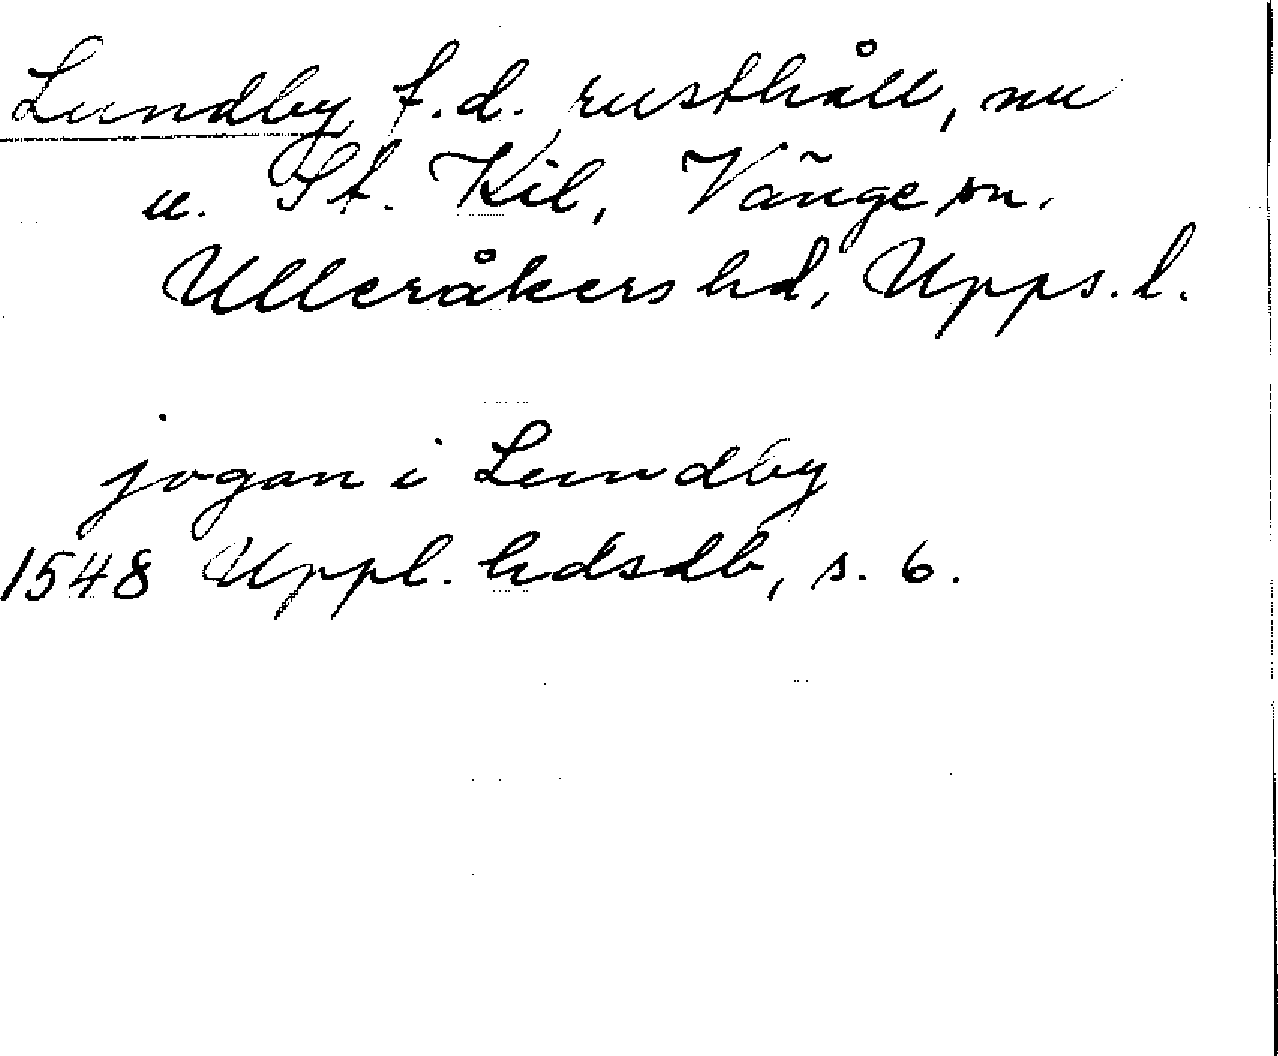 Lundby, f.d. rusthåll, nu
u. St. Kil, Vänge sn.
Ulleråkers hd, Upps. l.
jogan i Lundby
1548 Uppl. hdsdb, s. 6.